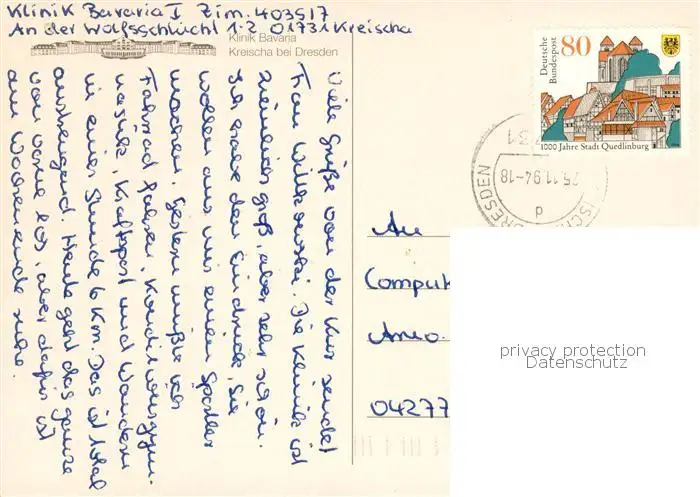 Klinik Bavaria I Zim. 403517
An der Wolfsschlucht 1-2 01731 Kreischa
Klinik Bavaria
Kreischa bei Dresden
Viele Grüße von der Kur sendet
Frau Die Klinik ist
ziemlich groß, aber sehr schön.
Ich habe den Eindruck, sie
wollen aus uns einen Sportler
machen. Gestern mußte ich
Fahrrad fahren, Konditionsgym-
nastik, Kraftsport und Wandern
in einer Stunde 6 Km. Das ist total
anstrengend. Heute geht das ganze
von vorne los, aber dafür ist
am Wochenende Ruhe.
Deutsche
Bundespost
80
1000 Jahre Stadt Quedlinburg
DRESDEN
25.11.94-18
p
An
Comput
04277
privacy protection
Datenschutz